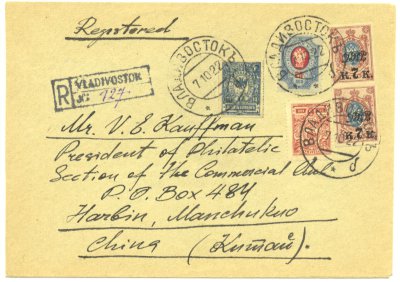 Registered
ВЛАДИВОСТОКЪ
7 10 22
VLADIVOSTOK
R
№ 127.
К. 7 К.
К. 7 К.
Mr. V. E. Kauffman
President of Philatelic
Section of the Commercial Club
P. O. Box 484
Harbin, Manchukuo
China (Китай)